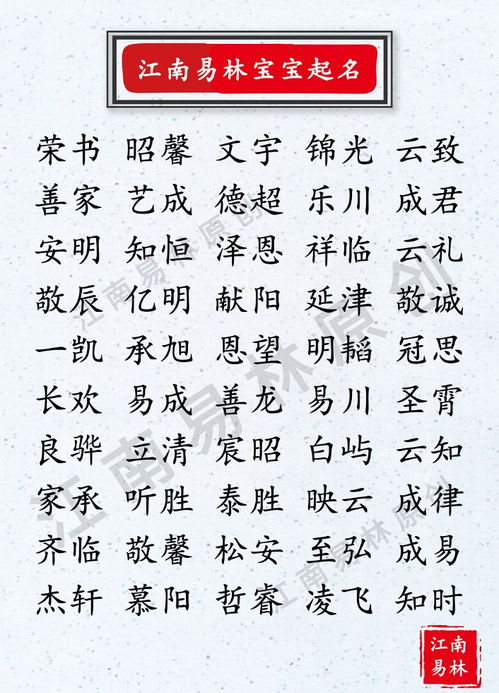 江南易林宝宝起名
荣书 昭馨 文宇 锦光 云致
善家 艺成 德超 乐川 成君
安明 知恒 泽恩 祥临 云礼
敬辰 亿明 献阳 延津 敬诚
一凯 承旭 恩望 明韬 冠思
长欢 易成 善龙 易川 圣霄
良骅 立清 宸昭 白屿 云知
家承 听胜 泰胜 映云 成律
齐临 敬馨 松安 至弘 成易
杰轩 慕阳 哲睿 凌飞 知时
江南易林原创
江南易林原创
江南易林原创
江南
易林